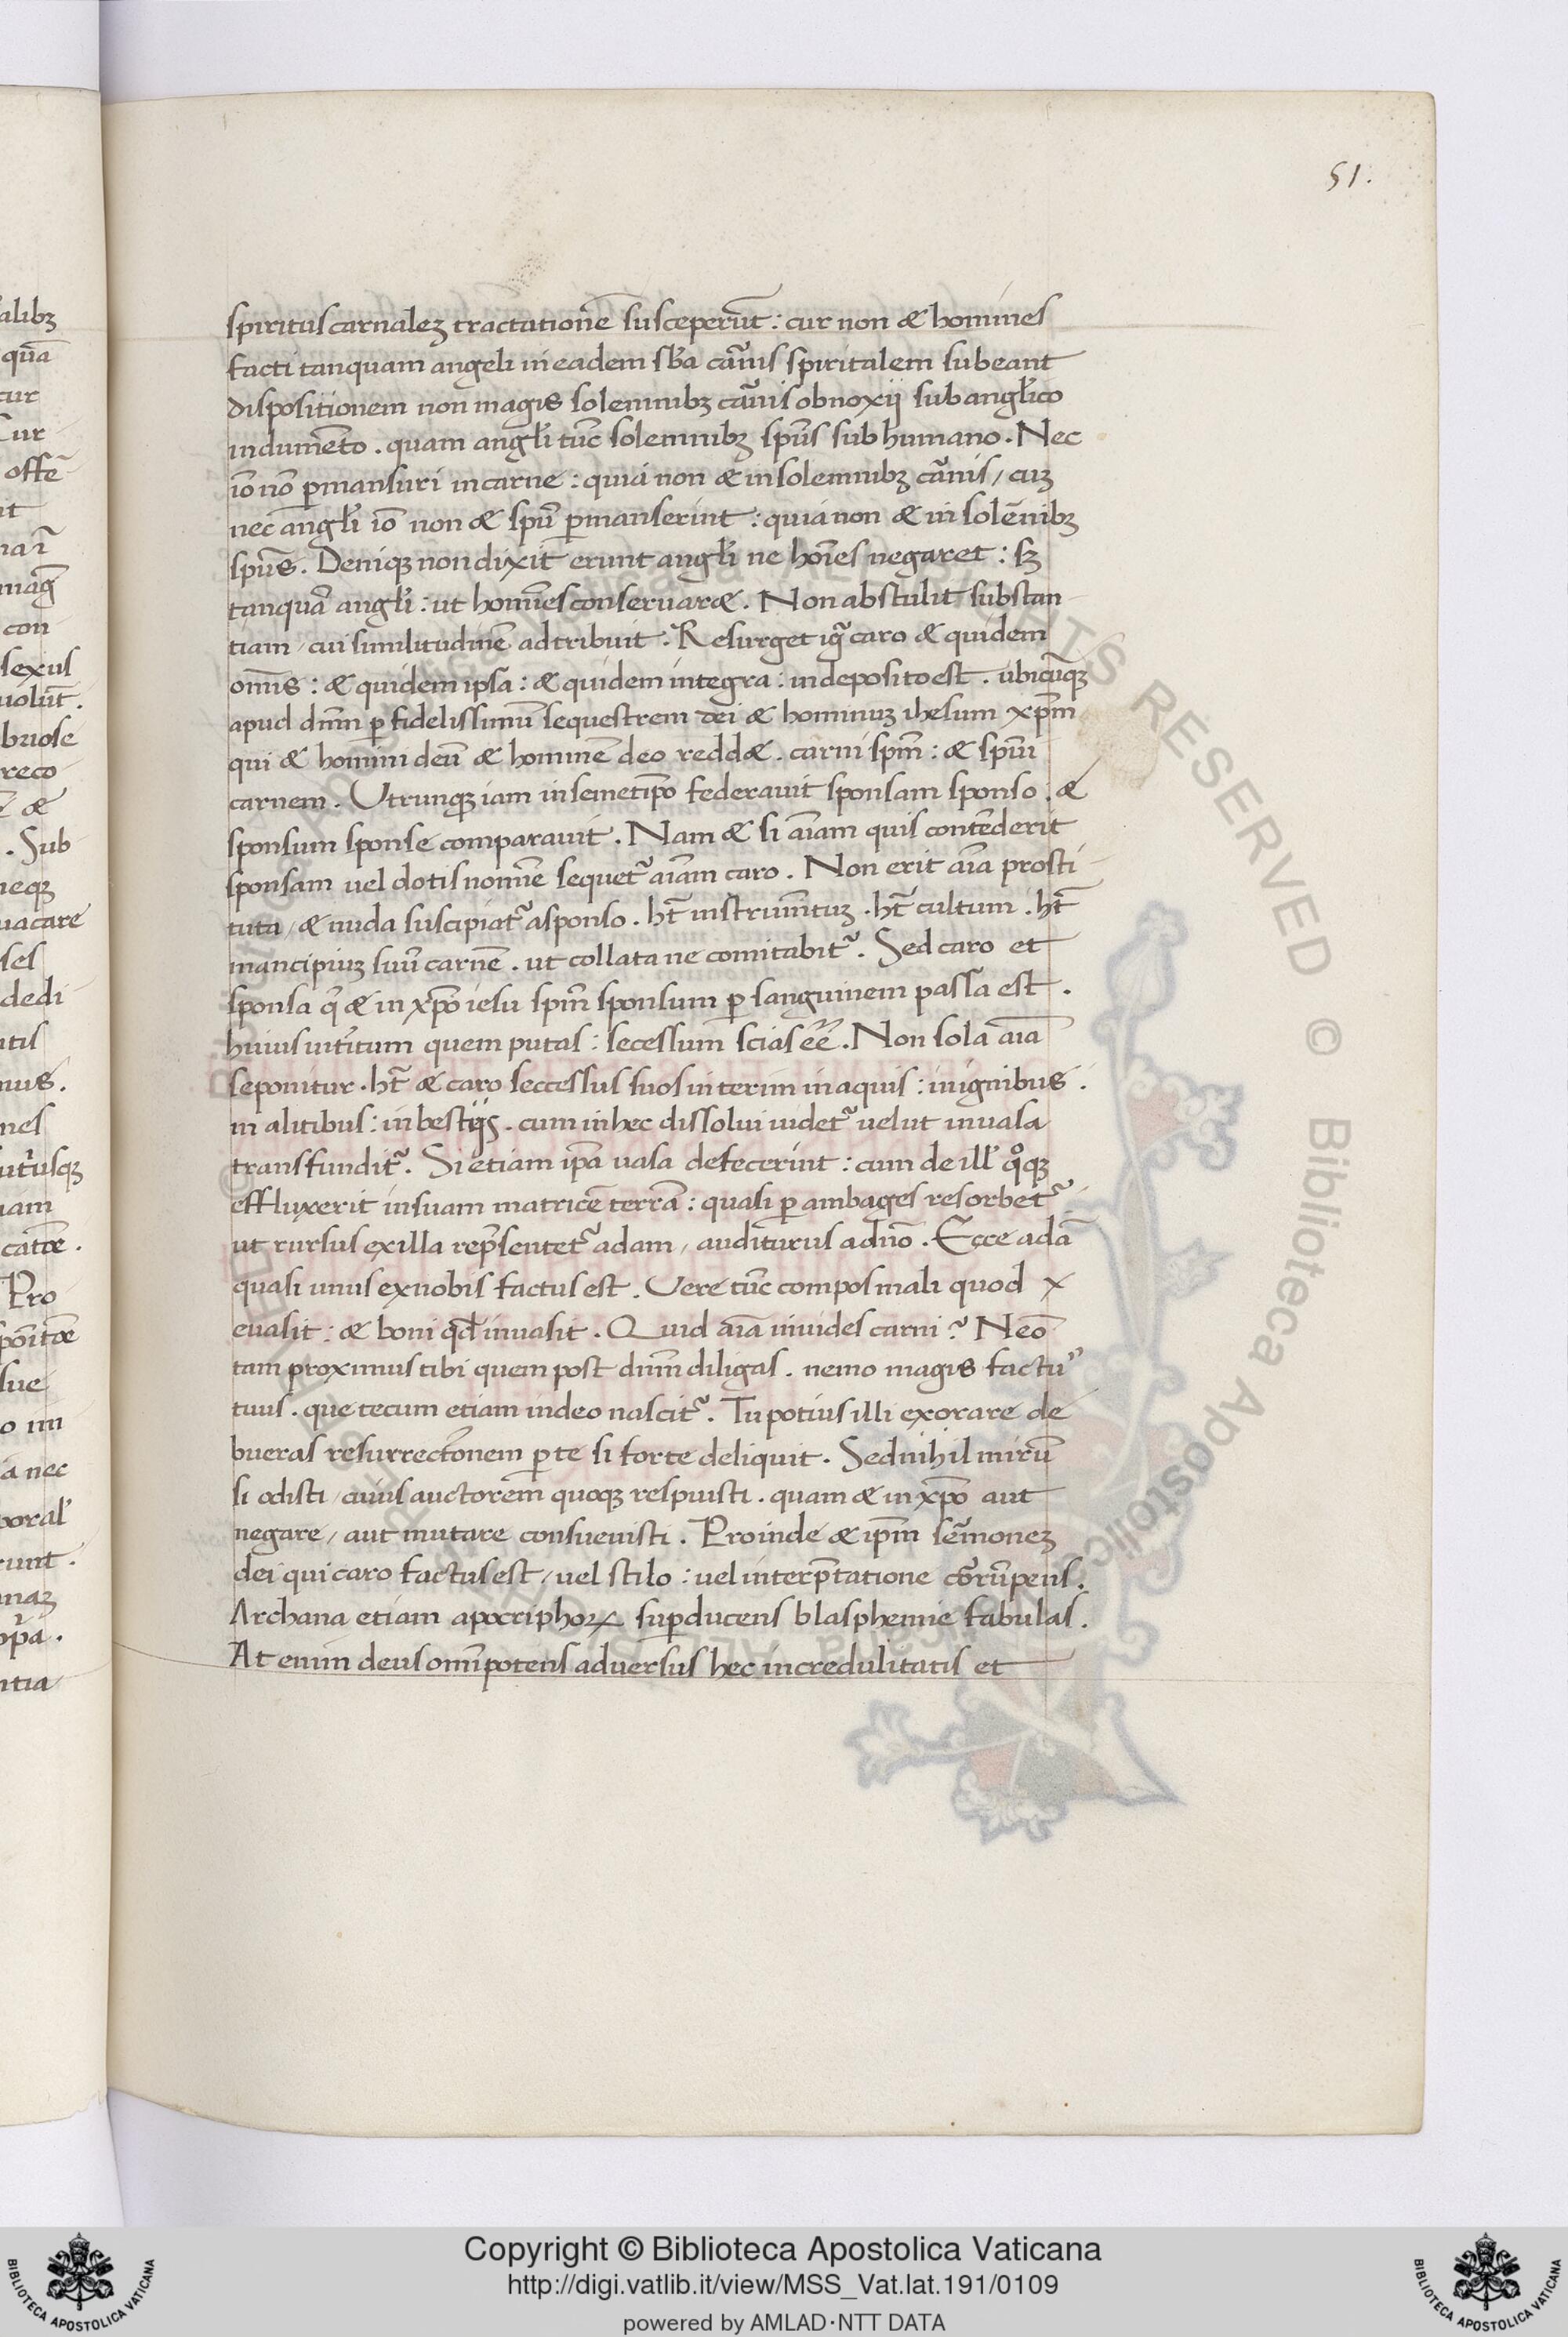 51.
alibꝫ
quā
cur
Cur
offē
it
magꝭ
con
sexus
uolūt.
briose
reco
& 
. Sub
neqꝫ
uacare
ses
dedi
utis
mus.
nes
utrusqꝫ
iam
Pro
sue
o im
a nec
poral
runt.
ntia
spiritus carnaleꝫ tractationē susceperūt : cur non & homines
facti tanquam angeli in eadem sb̄a carnis spiritalem subeant
dispositionem non magis solemnibꝫ carnis obnoxij sub angl̄ico
indumēto . quam angl̄i tūc solemnibꝫ spūs sub humano . Nec
iō nō ꝑmansuri in carne : quia non & in solemnibꝫ carnis / cuꝫ
nec angl̄i iō non & spū ꝑmanserint : quia non & in solēnibꝫ
spūs . Deniqꝫ non dixit erunt angl̄i ne hoīes negaret : sꝫ
tanquā angl̄i : ut homīes conseruar& . Non abstulit substan
tiam / cui similitudinē adtribuit . Resurget igr̄ caro & quidem
omīs : & quidem ipsa : & quidem integra : in deposito est . ubicūqꝫ
apud dm̄m ꝑ fidelissimū sequestrem dei & hominuꝫ ihesum xp̄m
qui & homini deū & hominē deo redd& . carni spm̄ : & spūi
carnem . Utrunqꝫ iam in semetip̄o federauit sponsam sponso . &
sponsum sponse comparauit . Nam & si aīam quis contēderit
sponsam uel dotis nomīe sequetᷣ aīam caro . Non erit aīa prosti
tuta / & nuda suscipiatᷣ a sponso . hт̄ instrumētuꝫ . hт̄ cultum . hт̄
mancipiuꝫ suū carnē . ut collatane comitabitᷣ . Sed caro et
sponsa q̄ & in xp̄o iesu spm̄ sponsum ꝑ sanguinem passa est .
huius int̄itum quem putas : secessum scias eē . Non sola aīa
seponitur . hт̄ & caro seccessus suos interim in aquis : in ignibus .
in alitibus : in bestijs . cum in hec dissolui uidetᷣ uelut in uasa
transfunditᷣ . Si etiam ip̄a uasa defecerint : cum de ill' qͦqꝫ
effluxerit in suam matricē terrā : quasi ꝑ ambages resorbetᷣ
ut rursus ex illa rep̄sentetᷣ adam / auditurus a dn̄o . Ecce adā
quasi unus ex nobis factus est . Uere tūc compos mali quod x
euasit : & boni qd̄ inuasit . Quid aīa inuides carni ? Nēo
tam proximus tibi quem post dn̄m diligas . nemo magis factuꝰ
tuus . que tecum etiam in deo nascitᷣ . Tu potius illi exorare de
bueras resurrectōnem ꝑ te si forte deliquit . Sed nihil mirū
si odisti / cuius auctorem quoqꝫ respuisti . quam & in xp̄o aut
negare / aut mutare consueuisti . Proinde & ip̄m sermoneꝫ
dei qui caro factus est / uel stilo : uel interp̄tatione corrūpens .
Archana etiam apocriphoꝝ suꝑducens blasphemie fabulas .
At enim deus omīpotens aduersus hec incredulitatis et
Copyright © Biblioteca Apostolica Vaticana
http://digi.vatlib.it/view/MSS_Vat.lat.191/0109
powered by AMLAD·NTT DATA
BIBLIOTECA APOSTOLICA VATICANA
BIBLIOTECA APOSTOLICA VATICANA